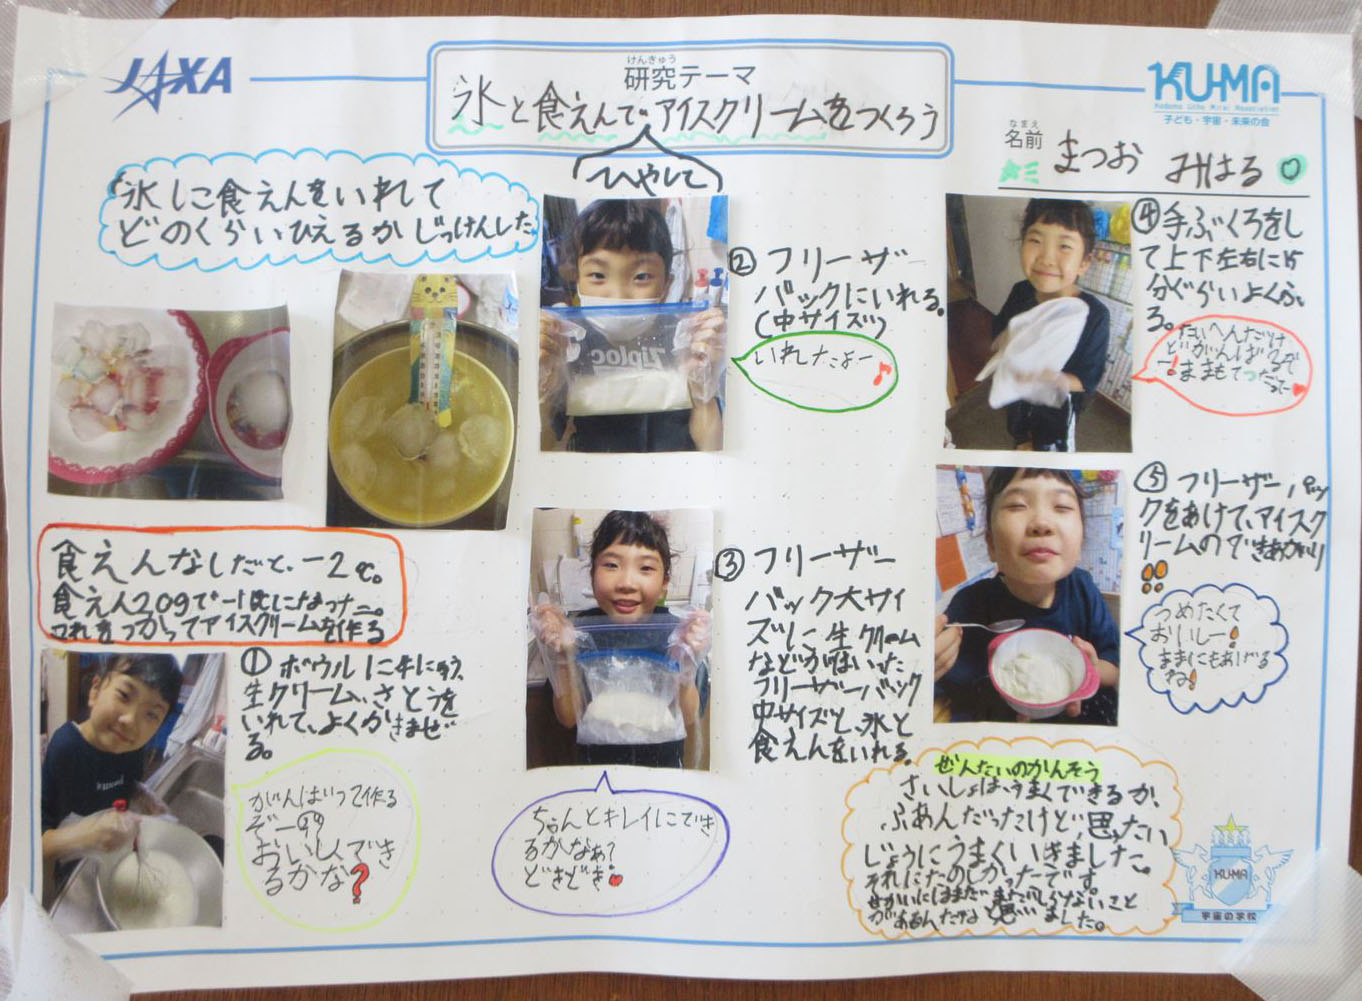 JAXA
けんきゅう
研究テーマ
氷と食えんでアイスクリームをつくろう
ひやして
KU-MA
子ども・宇宙・未来の会
なまえ
名前
まつお みはる
氷に食えんをいれて
どのくらいひえるかじっけんした。
食えんなしだと、-2℃。
食えん20gで-1℃になった。
これをつかってアイスクリームを作る
① ボウルに牛にゅう、
生クリーム、さとうを
いれて、よくかきまぜ
る。
がんばって作る
ぞー
おいしくでき
るかな?
② フリーザー
バックにいれる。
(中サイズ)
いれしたよー♪
Ziploc
③ フリーザー
バック大サイ
ズに、生クリーム
などがはいった
フリーザーバック
中サイズと、氷と
食えんをいれる。
ちゃんとキレイにでき
るかなぁ?
どきどき
④ 手ぶくろをし
て上下左右に15
分ぐらいよくふ
る。
たいへんだけ
どがんばるぞ
ー!ままもてつだってー
⑤ フリーザーパッ
クをあけて、アイスク
リームのできあがり
!!
つめたくて
おいしー!
ままにもあげる
ね!
ぜんたいのかんそう
さいしょは、うまくできるか、
ふあんだったけど、思ったい
じょうにうまくいきました。
それにたのしかったです。
せかいにはまだまだしらないこと
があるんだなと思いました。
KU-MA
宇宙の学校